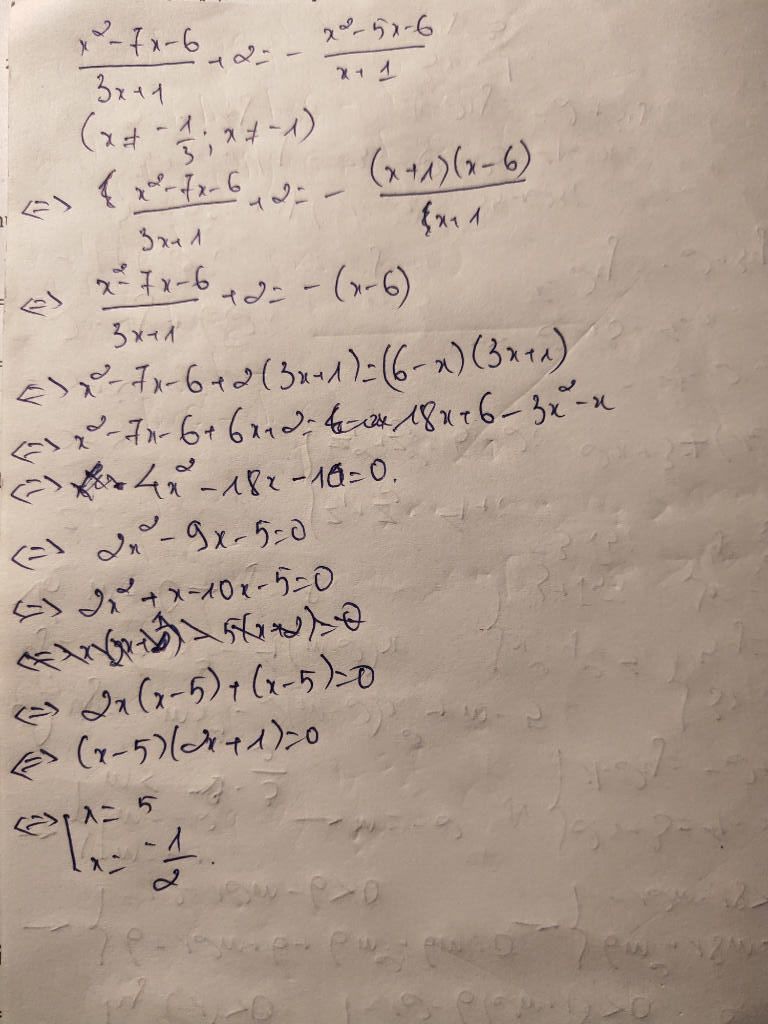 (x²-7x-6)/(3x+1) + 2 = - (x²-5x-6)/(x+1)
(x ≠ -1/3; x ≠ -1)
<=> (x²-7x-6)/(3x+1) + 2 = - ((x+1)(x-6))/(x+1)
<=> (x²-7x-6)/(3x+1) + 2 = - (x-6)
<=> x²-7x-6+2(3x+1)=(6-x)(3x+1)
<=> x²-7x-6+6x+2= 18x+6-3x²-x
<=> 4x²-18x-10=0.
<=> 2x²-9x-5=0
<=> 2x²+x-10x-5=0
<=> x(2x+1)-5(x+2)=0
<=> 2x(x-5)+(x-5)=0
<=> (x-5)(2x+1)=0
<=> [x= 5
x= -1/2.